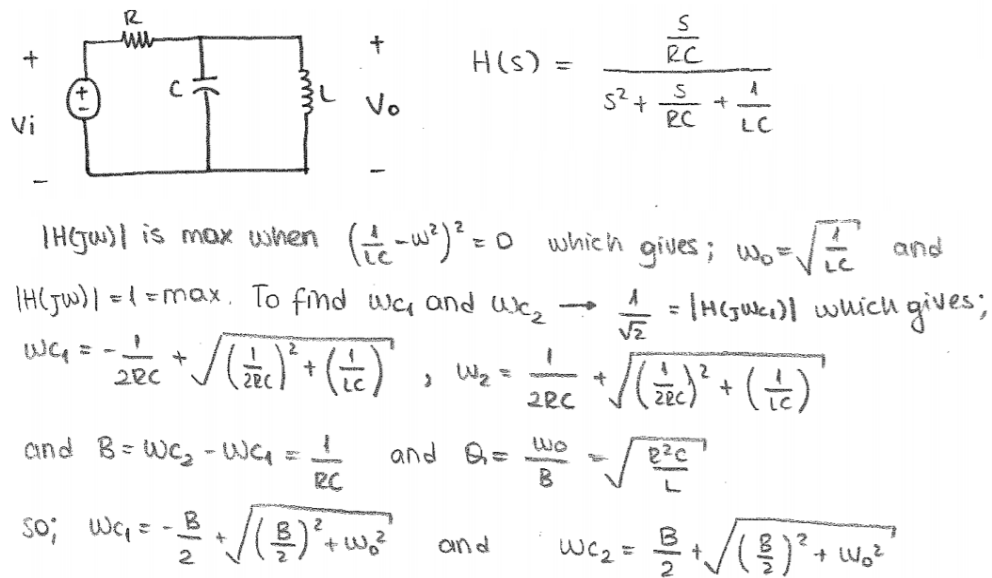 R
+ + - C L + Vo
Vi
- -
H(s) = (s/RC) / (s² + s/RC + 1/LC)
|H(jw)| is max when (1/LC - w²)² = 0 which gives; w₀ = √(1/LC) and
|H(jw)| = 1 = max. To find wc₁ and wc₂ → 1/√2 = |H(jwc₁)| which gives;
wc₁ = - 1/2RC + √((1/2RC)² + (1/LC)) , w₂ = 1/2RC + √((1/2RC)² + (1/LC))
and B = wc₂ - wc₁ = 1/RC and Q = w₀/B = √(R²C/L)
so; wc₁ = - B/2 + √((B/2)² + w₀²) and wc₂ = B/2 + √((B/2)² + w₀²)